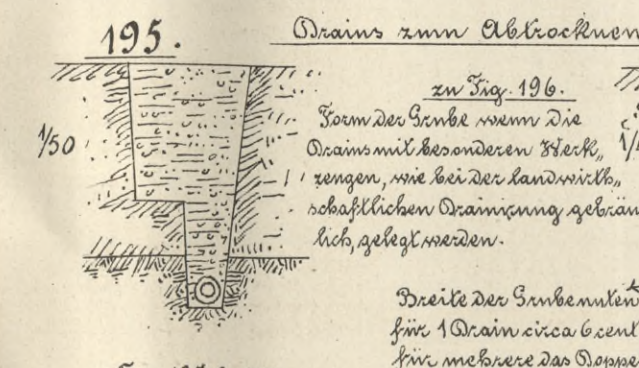 195.
Drains zum Abtrocknen
zu Fig. 196.
1/50
Form der Grube wenn die
Drains mit besonderen Werk„
zeugen, wie bei der landwirth„
schaftlichen Drainirung gebräu
lich, gelegt werden.
Breite der Grube unten
für 1 Drain circa 6 cent
für mehrere das Doppe